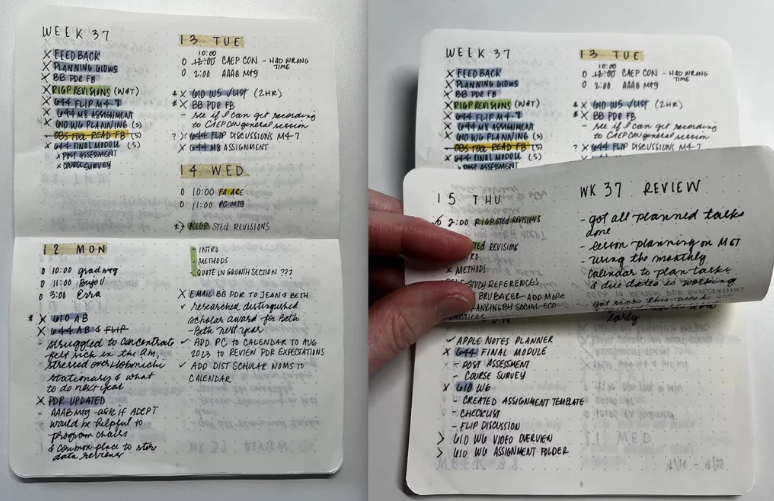 WEEK 37
X FEEDBACK
X PLANNING GIOWS
X BB PDR FB
X RIGP REVISIONS (W&T)
X G44 FLIP M4-7
X G44 M8 ASSIGNMENT
X G10 WG PLANNING (S)
READ FB (S)
X G44 FINAL MODULE (S)
X POST ASSESSMENT
X COURSE SURVEY
13 TUE
10:00
O 12:00 CAEP CON - HAD WRONG TIME
O 2:00 AAAB MTG
X G10 W5 (2HR)
X BB PDR FB
- see if I can get recording
to CAEP CON general session
? G44 FLIP DISCUSSIONS M4-7
X G44 M8 ASSIGNMENT
14 WED
O 10:00
O 11:00 MTG
RIGP REVISIONS
12 MON
O 10:00 grad mtg
O 11:00
O 3:00 Ezra
* X G10 AB
X G44 AB FLIP
- struggled to concentrate
felt sick in the am,
stressed over
stationary & what
to do next year
X PDR UPDATED
- AAAB Mtg - ask if ADEPT
would be helpful to
program chairs
& common place to store
data reviews
INTRO
METHODS
QUOTE IN GROWTH SECTION ???
X EMAIL BB PDR TO JEAN & BETH
X researched distinguished
scholar award for Beth
- Beth next year
✓ ADD PC TO CALENDAR TO AUG
2023 TO REVIEW PDR EXPECTATIONS
✓ ADD DIST SCHOLAR NOMS TO
CALENDAR
WEEK 37
X FEEDBACK
X PLANNING GIOWS
X BB PDR FB
X RIGP REVISIONS (W&T)
X G44 FLIP M4-7
X G44 M8 ASSIGNMENT
X G10 WG PLANNING (S)
READ FB (S)
X G44 FINAL MODULE (S)
X POST ASSESSMENT
13 TUE
10:00
O 12:00 CAEP CON - HAD WRONG TIME
O 2:00 AAAB MTG
X G10 W5 (2HR)
X BB PDR FB
- see if I can get recording
to CAEP CON general session
? G44 FLIP DISCUSSIONS M4-7
15 THU
2:00 REVISIONS
REVISION
X METHODS
STUDY REFERENCES
BRUBAKER - ADD MORE
SOCIAL-ECO
✓ APPLE NOTES PLANNER
X G44 FINAL MODULE
- POST ASSESSMENT
- COURSE SURVEY
X G10 W6
- CREATED ASSIGNMENT TEMPLATE
- CHECKLIST
- FLIP DISCUSSION
> G10 W6 VIDEO OVERVIEW
> G10 W6 ASSIGNMENT FOLDER
WK 37 REVIEW
- got all planned tasks
done
- lesson planning on M&T
- using the monthly
calendar to plan tasks
& due dates is working
- got sick this week
early